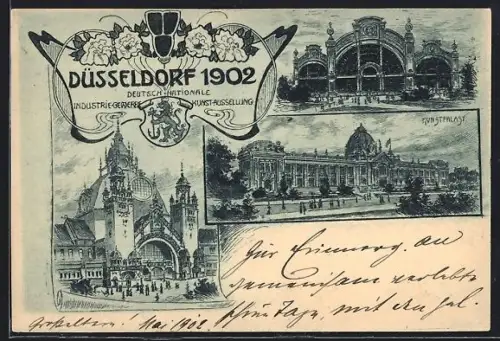 DÜSSELDORF 1902
DEUTSCH-NATIONALE
INDUSTRIE-GEWERBE KUNST-AUSSELLUNG
KUNSTPALAST
Zur Erinnerg. an
gemeinsam verlebte
schöne Tage, mit
Großeltern! Mai 1902.